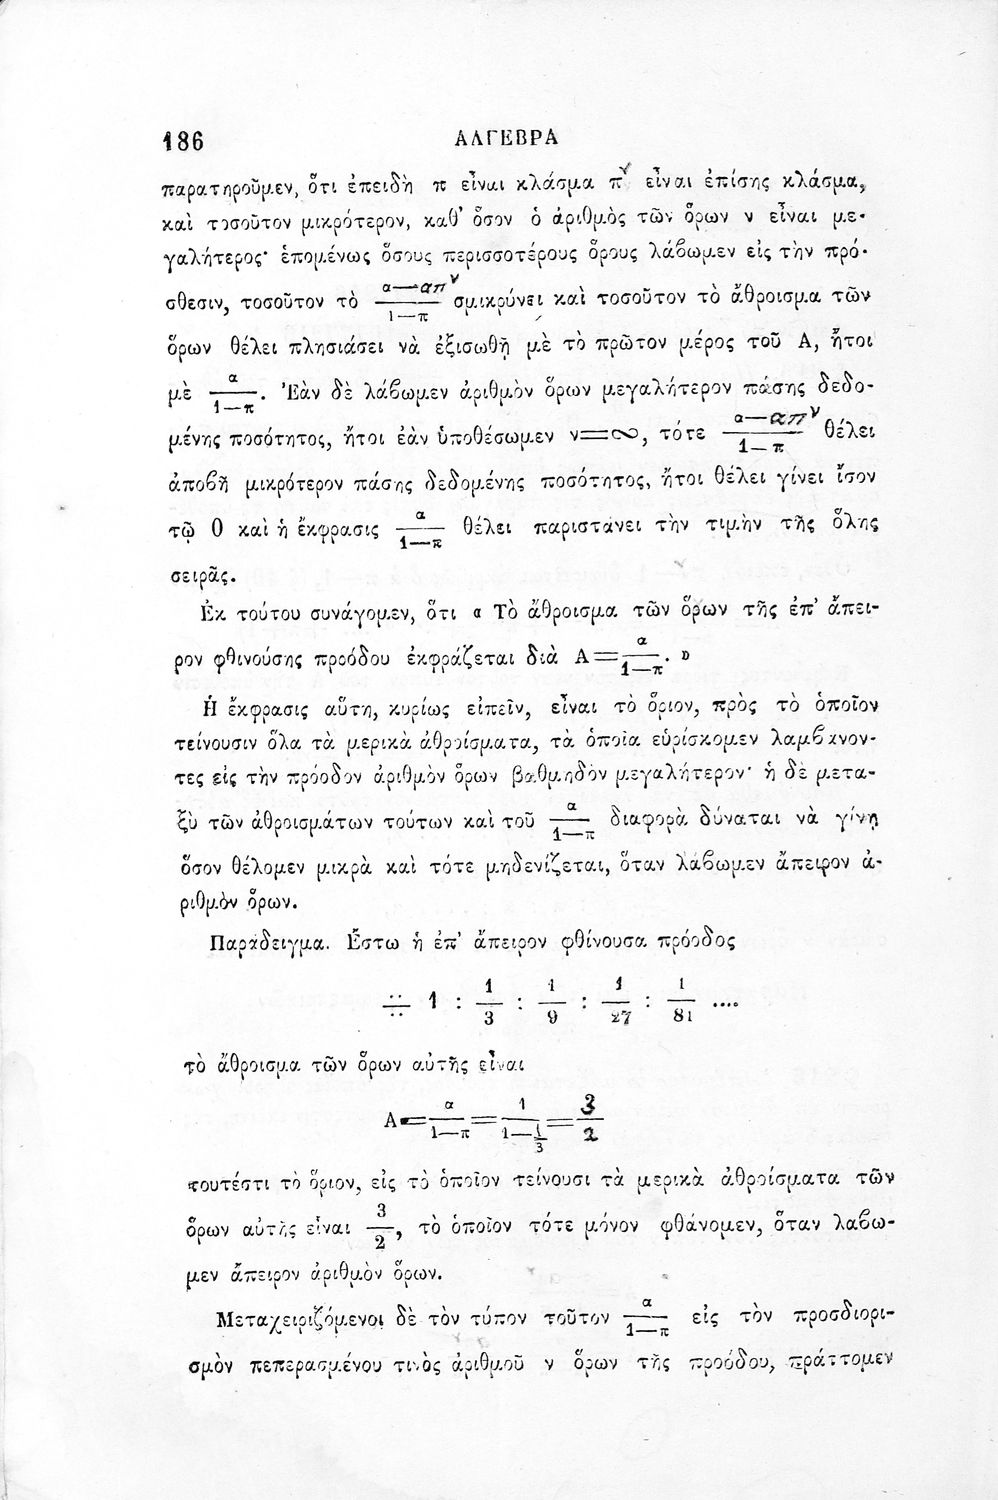 186 ΑΛΓΕΒΡΑ
παρατηροῦμεν, ὅτι ἐπειδὴ π εἶναι κλάσμα π^ν εἶναι ἐπίσης κλάσμα,
καὶ τοσοῦτον μικρότερον, καθ' ὅσον ὁ ἀριθμὸς τῶν ὅρων ν εἶναι με-
γαλήτερος· ἑπομένως ὅσους περισσοτέρους ὅρους λάβωμεν εἰς τὴν πρό-
σθεσιν, τοσοῦτον τὸ (α—απ^ν)/(1—π) σμικρύνει καὶ τοσοῦτον τὸ ἄθροισμα τῶν
ὅρων θέλει πλησιάσει νὰ ἐξισωθῇ μὲ τὸ πρῶτον μέρος τοῦ Α, ἤτοι
μὲ α/(1—π). Ἐὰν δὲ λάβωμεν ἀριθμὸν ὅρων μεγαλήτερον πάσης δεδο-
μένης ποσότητος, ἤτοι ἐὰν ὑποθέσωμεν ν=∞, τότε (α—απ^ν)/(1—π) θέλει
ἀποβῆ μικρότερον πάσης δεδομένης ποσότητος, ἤτοι θέλει γίνει ἴσον
τῷ 0 καὶ ἡ ἔκφρασις α/(1—π) θέλει παριστάνει τὴν τιμὴν τῆς ὅλης
σειρᾶς.
Ἐκ τούτου συνάγομεν, ὅτι « Τὸ ἄθροισμα τῶν ὅρων τῆς ἐπ' ἄπει-
ρον φθινούσης προόδου ἐκφράζεται διὰ Α=α/(1—π). »
Ἡ ἔκφρασις αὕτη, κυρίως εἰπεῖν, εἶναι τὸ ὅριον, πρὸς τὸ ὁποῖον
τείνουσιν ὅλα τὰ μερικὰ ἀθροίσματα, τὰ ὁποῖα εὑρίσκομεν λαμβάνον-
τες εἰς τὴν πρόοδον ἀριθμὸν ὅρων βαθμηδὸν μεγαλήτερον· ἡ δὲ μετα-
ξὺ τῶν ἀθροισμάτων τούτων καὶ τοῦ α/(1—π) διαφορὰ δύναται νὰ γίνῃ
ὅσον θέλομεν μικρὰ καὶ τότε μηδενίζεται, ὅταν λάβωμεν ἄπειρον ἀ-
ριθμὸν ὅρων.
Παράδειγμα. Ἔστω ἡ ἐπ' ἄπειρον φθίνουσα πρόοδος
∺ 1 : 1/3 : 1/9 : 1/27 : 1/81 ....
τὸ ἄθροισμα τῶν ὅρων αὐτῆς εἶναι
Α=α/(1—π)=1/(1—1/3)=3/2
τουτέστι τὸ ὅριον, εἰς τὸ ὁποῖον τείνουσι τὰ μερικὰ ἀθροίσματα τῶν
ὅρων αὐτῆς εἶναι 3/2, τὸ ὁποῖον τότε μόνον φθάνομεν, ὅταν λάβω-
μεν ἄπειρον ἀριθμὸν ὅρων.
Μεταχειριζόμενοι δὲ τὸν τύπον τοῦτον α/(1—π) εἰς τὸν προσδιορι-
σμὸν πεπερασμένου τινὸς ἀριθμοῦ ν ὅρων τῆς προόδου, πράττομεν